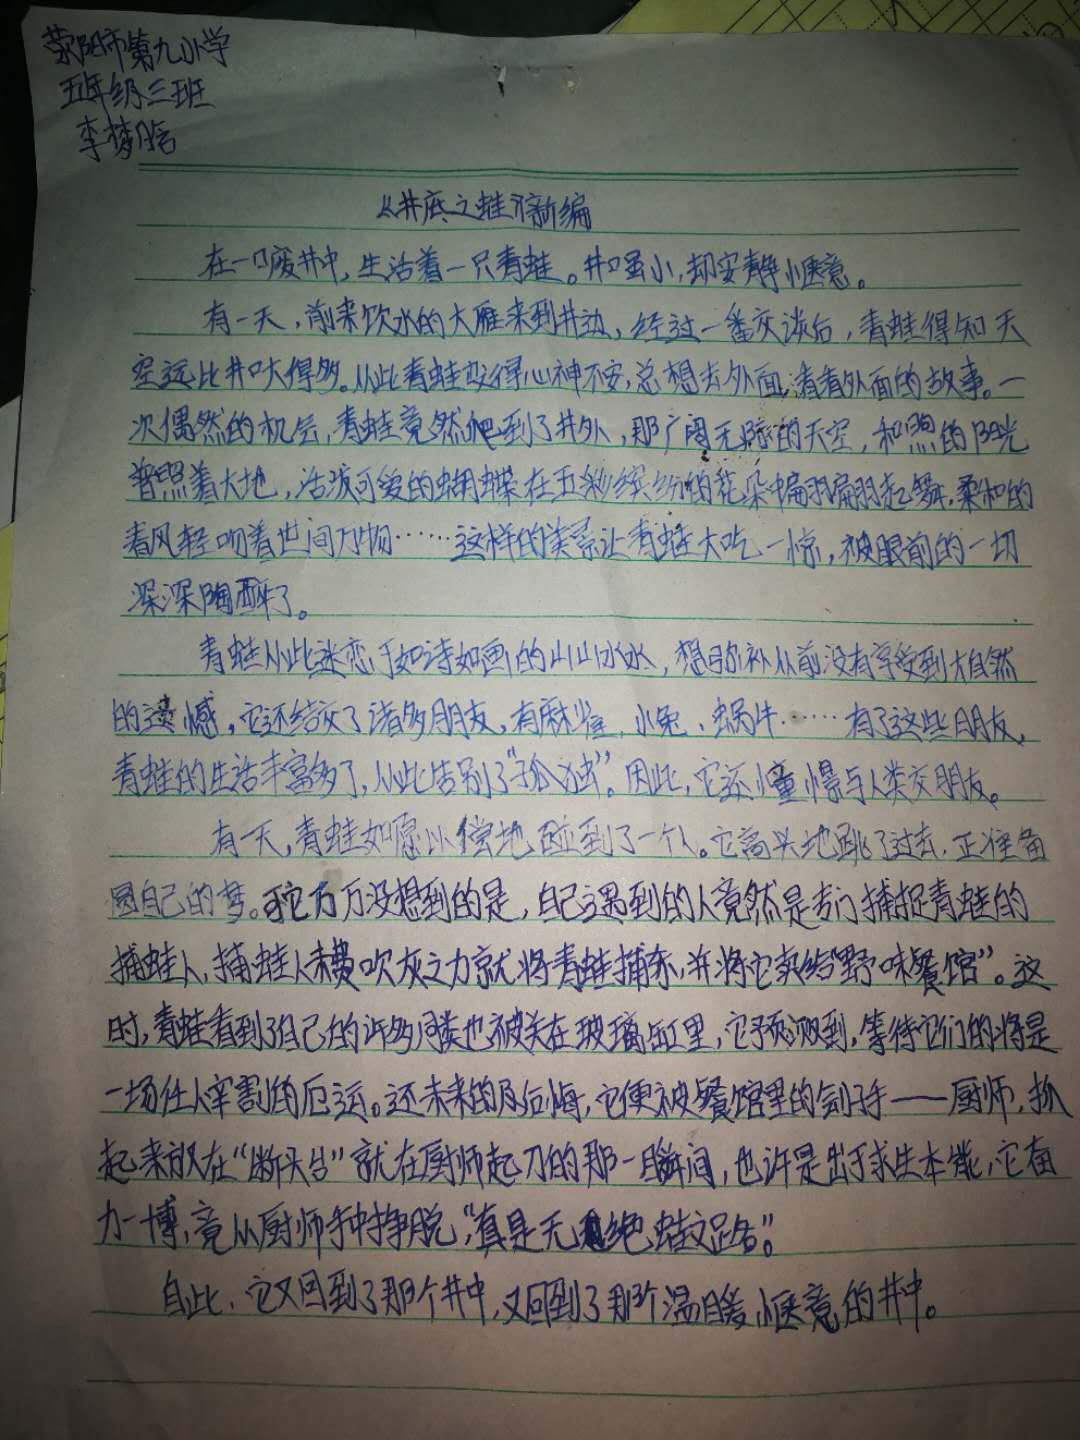 荥阳市第九小学
五年级三班
李梦晗
《井底之蛙》新编
在一口废井中,生活着一只青蛙。井口虽小,却安静惬意。
有一天,前来饮水的大雁来到井边,经过一番交谈后,青蛙得知天
空远比井口大得多。从此青蛙变得心神不安,总想去外面,看看外面的故事。一
次偶然的机会,青蛙竟然爬到了井外,那广阔无际的天空,和煦的阳光
普照着大地,活泼可爱的蝴蝶在五彩缤纷的花朵中翩翩起舞,柔和的
春风轻吻着世间万物……这样的美景让青蛙大吃一惊,被眼前的一切
深深陶醉了。
青蛙从此迷恋于如诗如画的山山水水,想弥补从前没有享受到大自然
的遗憾。它还结交了诸多朋友,有麻雀、小兔、蜗牛……有了这些朋友,
青蛙的生活丰富多了,从此告别了“孤独”。因此,它还憧憬与人类交朋友。
有一天,青蛙如愿以偿地碰到了一个人。它高兴地跳了过去,正准备
圆自己的梦。可它万万没想到的是,自己遇到的人竟然是专门捕捉青蛙的
捕蛙人,捕蛙人未费吹灰之力就将青蛙捕来,并将它卖给“野味餐馆”。这
时,青蛙看到了自己的许多同类也被关在玻璃缸里,它预测到,等待它们的将是
一场任人宰割的厄运。还未来的及后悔,它便被餐馆里的刽子手——厨师,抓
起来放在“断头台”就在厨师起刀的那一瞬间,也许是出于求生本能,它奋
力一博,竟从厨师手中挣脱,“真是天无绝蛙之路”。
自此,它又回到了那个井中,又回到了那个温暖,惬意的井中。